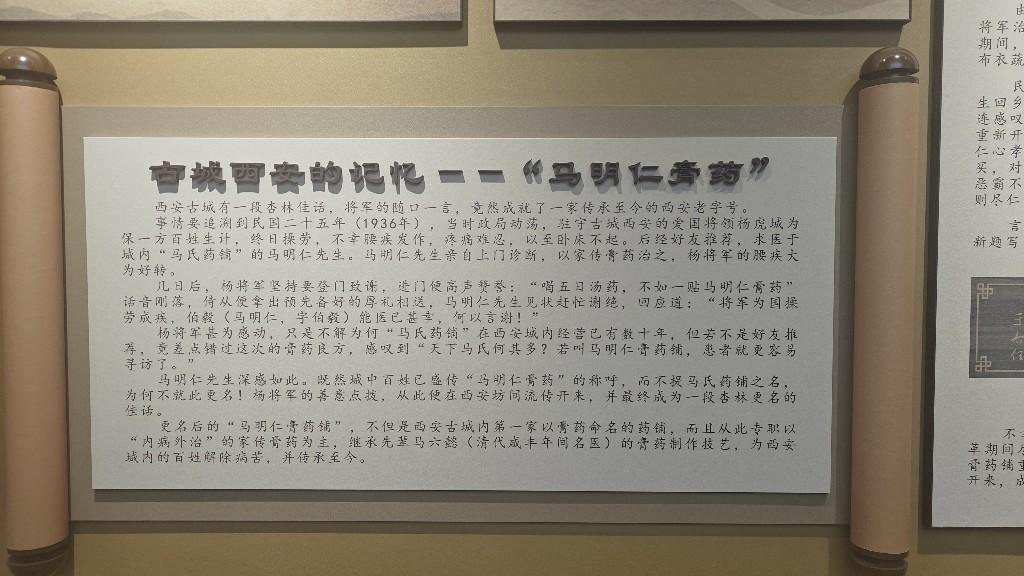 古城西安的记忆——“马明仁膏药”
西安古城有一段杏林佳话，将军的随口一言，竟然成就了一家传承至今的西安老字号。
事情要追溯到民国二十五年（1936年），当时政局动荡，驻守古城西安的爱国将领杨虎城为
保一方百姓生计，终日操劳，不幸腰疾发作，疼痛难忍，以至卧床不起。后经好友推荐，求医于
城内“马氏药铺”的马明仁先生。马明仁先生亲自上门诊断，以家传膏药治之，杨将军的腰疾大
为好转。
几日后，杨将军坚持要登门致谢，进门便高声赞誉：“喝五日汤药，不如一贴马明仁膏药”
话音刚落，侍从便拿出预先备好的厚礼相送，马明仁先生见状赶忙谢绝，回应道：“将军为国操
劳成疾，伯毅（马明仁，字伯毅）能医已甚幸，何以言谢！”
杨将军甚为感动，只是不解为何“马氏药铺”在西安城内经营已有数十年，但若不是好友推
荐，竟差点错过这次的膏药良方，感叹到“天下马氏何其多？若叫马明仁膏药铺，患者就更容易
寻访了。”
马明仁先生深感如此。既然城中百姓已盛传“马明仁膏药”的称呼，而不提马氏药铺之名，
为何不就此更名！杨将军的善意点拨，从此便在西安坊间流传开来，并最终成为一段杏林更名的
佳话。
更名后的“马明仁膏药铺”，不但是西安古城内第一家以膏药命名的药铺，而且从此专职以
“内病外治”的家传膏药为主，继承先辈马六懿（清代咸丰年间名医）的膏药制作技艺，为西安
城内的百姓解除病苦，并传承至今。
由
将军治
期间，
布衣蔬
民
生回乡
连感叹
重新开
仁心孝
买，对
恶霸不
则尽仁
言
新题写
不
革期间
膏药铺重
开来，成